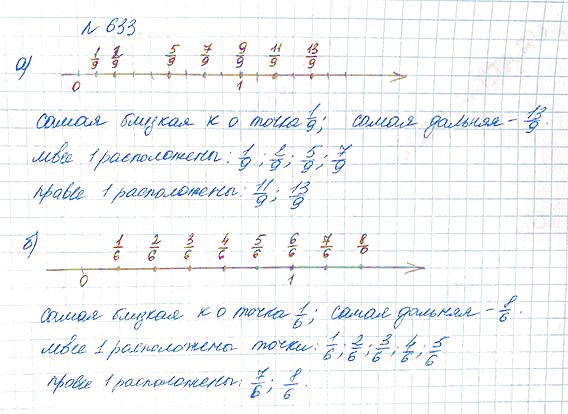 № 633
а) 1/9 2/9 5/9 7/9 9/9 11/9 13/9
0 1
самая близкая к 0 точка 1/9; самая дальняя – 13/9.
левее 1 расположены: 1/9; 2/9; 5/9; 7/9
правее 1 расположены: 11/9; 13/9
б) 1/6 2/6 3/6 4/6 5/6 6/6 7/6 8/6
0 1
самая близкая к 0 точка 1/6; самая дальняя – 8/6.
левее 1 расположены точки: 1/6; 2/6; 3/6; 4/6; 5/6
правее 1 расположены: 7/6; 8/6.